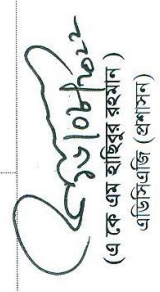 ১৬/০৮/২০২২
(এ কে এম হাছিবুর রহমান)
এডিসিএজি (প্রশাসন)